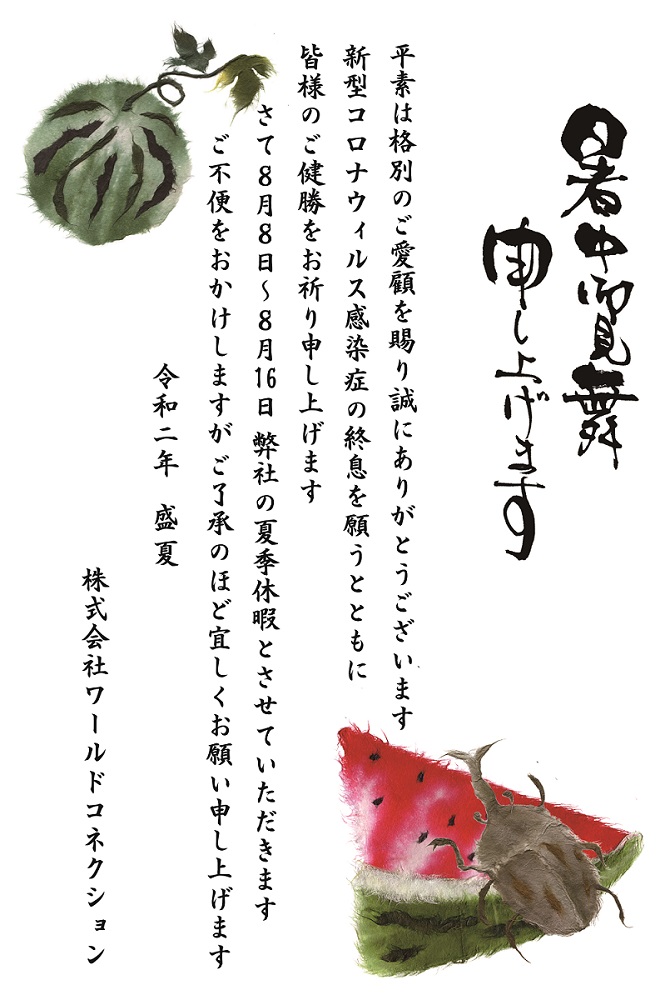 暑中御見舞
申し上げます
平素は格別のご愛顧を賜り誠にありがとうございます
新型コロナウィルス感染症の終息を願うとともに
皆様のご健勝をお祈り申し上げます
さて8月8日～8月16日 弊社の夏季休暇とさせていただきます
ご不便をおかけしますがご了承のほど宜しくお願い申し上げます
令和二年 盛夏
株式会社ワールドコネクション